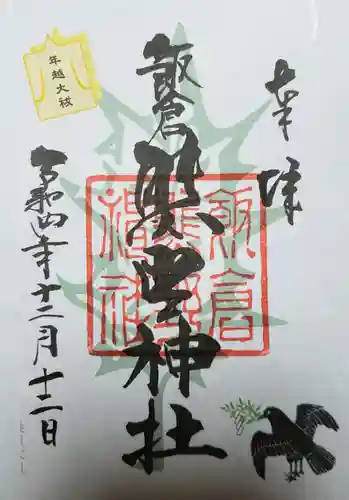 奉拝
飯倉
熊野神社
飯倉
熊野
神社
年越大祓
令和四年十二月十二日